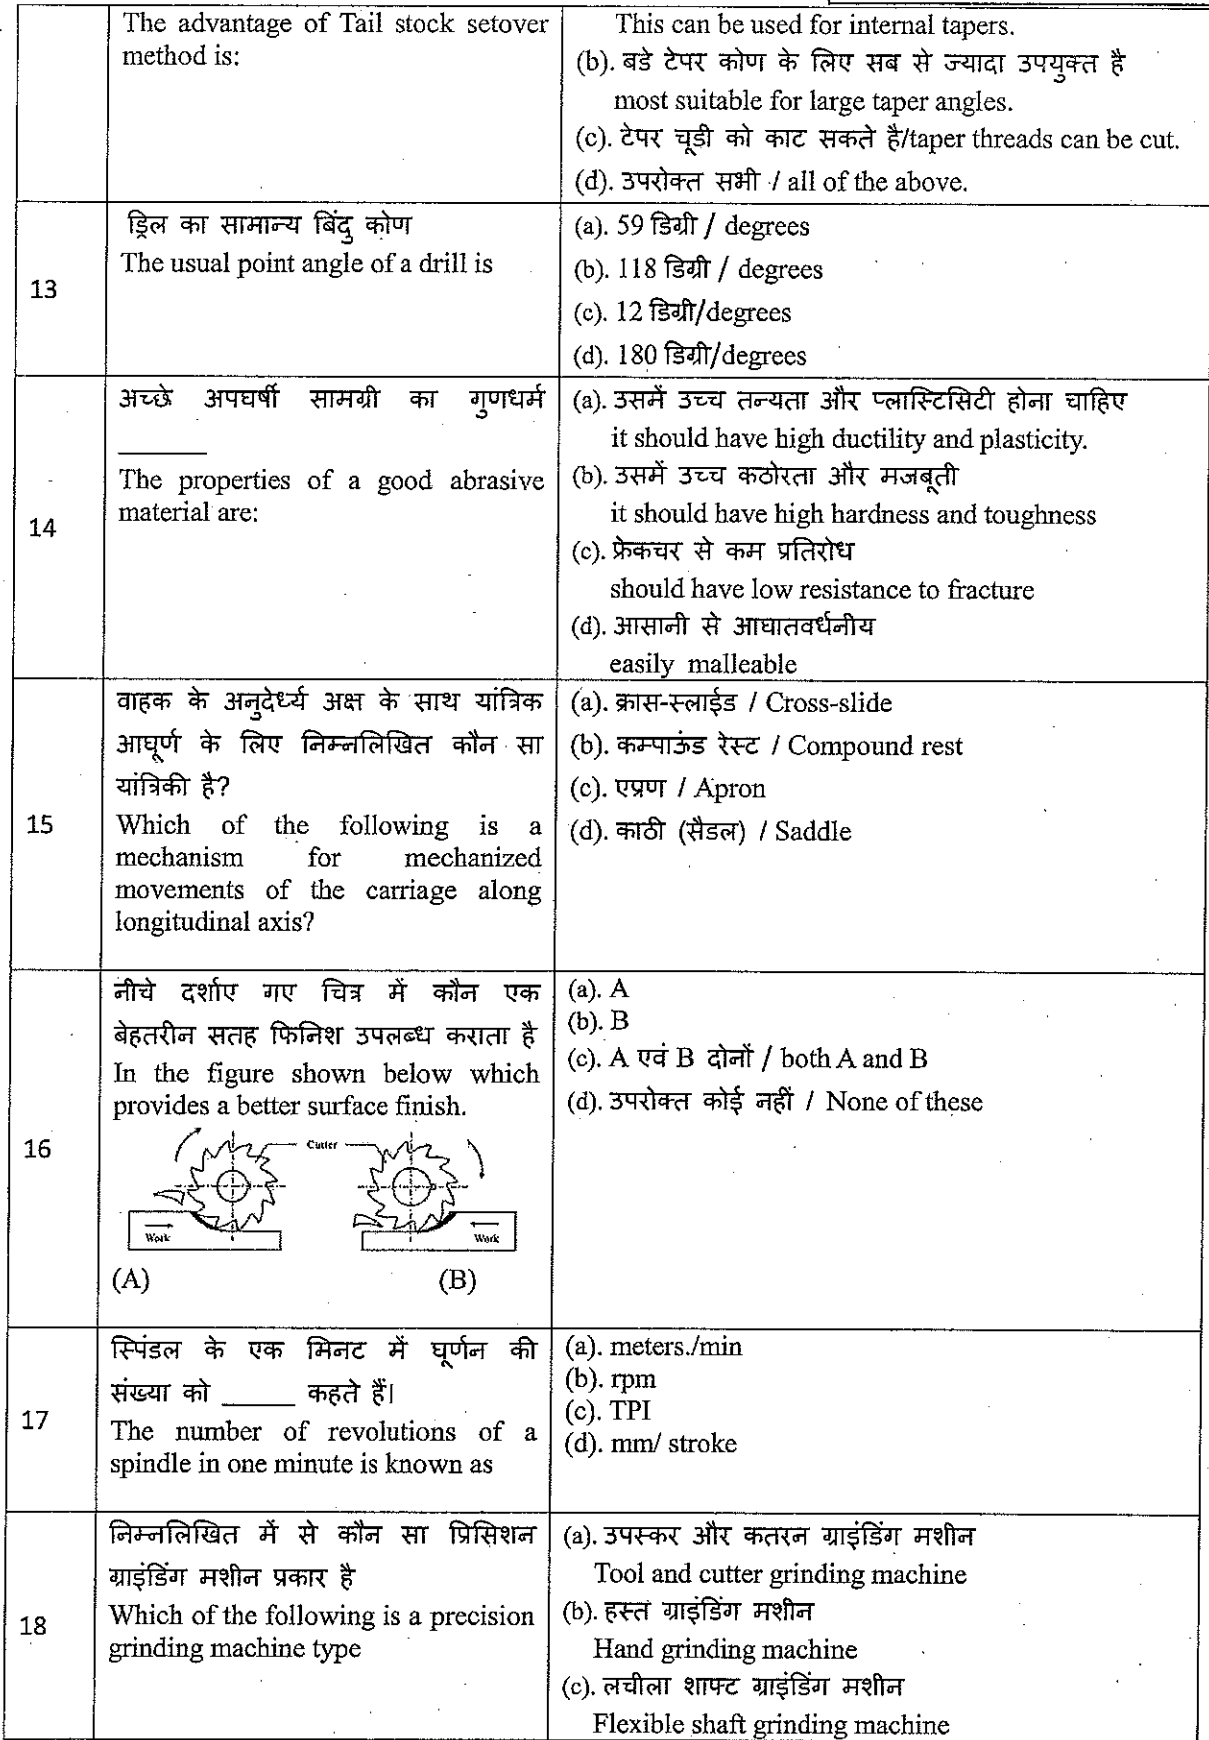 The advantage of Tail stock setover
method is:
This can be used for internal tapers.
(b). बडे टेपर कोण के लिए सब से ज्यादा उपयुक्त है
most suitable for large taper angles.
(c). टेपर चूडी को काट सकते है/taper threads can be cut.
(d). उपरोक्त सभी / all of the above.
13
ड्रिल का सामान्य बिंदु कोण
The usual point angle of a drill is
(a). 59 डिग्री / degrees
(b). 118 डिग्री / degrees
(c). 12 डिग्री/degrees
(d). 180 डिग्री/degrees
14
अच्छे अपघर्षी सामग्री का गुणधर्म
_______
The properties of a good abrasive
material are:
(a). उसमें उच्च तन्यता और प्लास्टिसिटी होना चाहिए
it should have high ductility and plasticity.
(b). उसमें उच्च कठोरता और मजबूती
it should have high hardness and toughness
(c). फ्रेकचर से कम प्रतिरोध
should have low resistance to fracture
(d). आसानी से आघातवर्धनीय
easily malleable
15
वाहक के अनुदेर्ध्य अक्ष के साथ यांत्रिक
आघूर्ण के लिए निम्नलिखित कौन सा
यांत्रिकी है?
Which of the following is a
mechanism for mechanized
movements of the carriage along
longitudinal axis?
(a). क्रास-स्लाईड / Cross-slide
(b). कम्पाऊंड रेस्ट / Compound rest
(c). एप्रण / Apron
(d). काठी (सैडल) / Saddle
16
नीचे दर्शाए गए चित्र में कौन एक
बेहतरीन सतह फिनिश उपलब्ध कराता है
In the figure shown below which
provides a better surface finish.
Cutter
Work
Work
(A) (B)
(a). A
(b). B
(c). A एवं B दोनों / both A and B
(d). उपरोक्त कोई नहीं / None of these
17
स्पिंडल के एक मिनट में घूर्णन की
संख्या को ______ कहते हैं।
The number of revolutions of a
spindle in one minute is known as
(a). meters./min
(b). rpm
(c). TPI
(d). mm/ stroke
18
निम्नलिखित में से कौन सा प्रिसिशन
ग्राइंडिंग मशीन प्रकार है
Which of the following is a precision
grinding machine type
(a). उपस्कर और कतरन ग्राइंडिंग मशीन
Tool and cutter grinding machine
(b). हस्त ग्राइंडिंग मशीन
Hand grinding machine
(c). लचीला शाफ्ट ग्राइंडिंग मशीन
Flexible shaft grinding machine